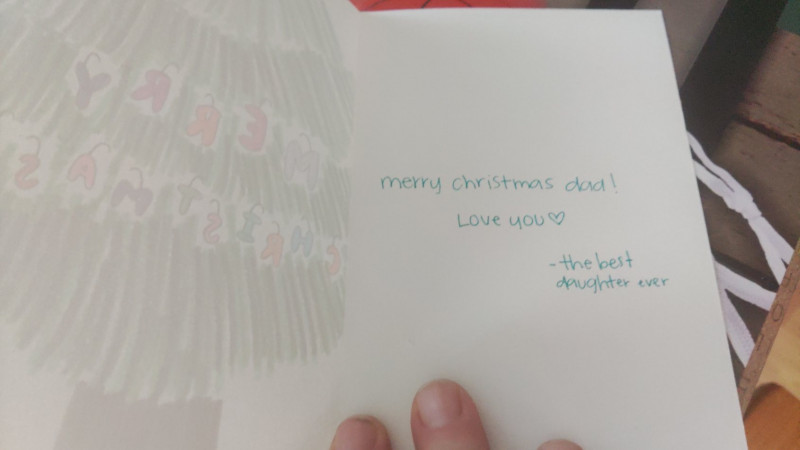 MERRY
CHRISTMAS
merry christmas dad!
Love you♡
-the best
daughter ever